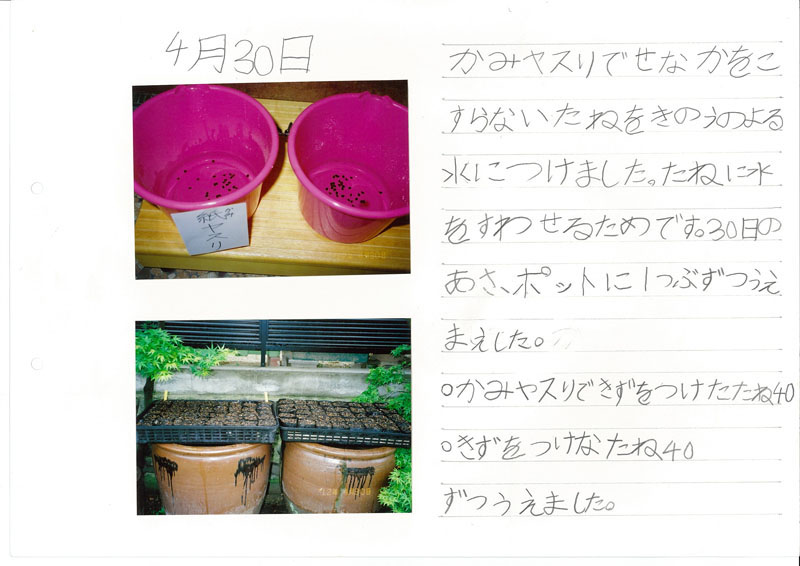 4月30日
かみヤスリ
紙ヤスリ
かみヤスリでせなかをこ
すらないたねをきのうのよる
水につけました。たねに水
をすわせるためです。30日の
あさ、ポットに1つぶずつうえ
まえした。
○かみヤスリできずをつけたたね40
○きずをつけなたね40
ずつうえました。